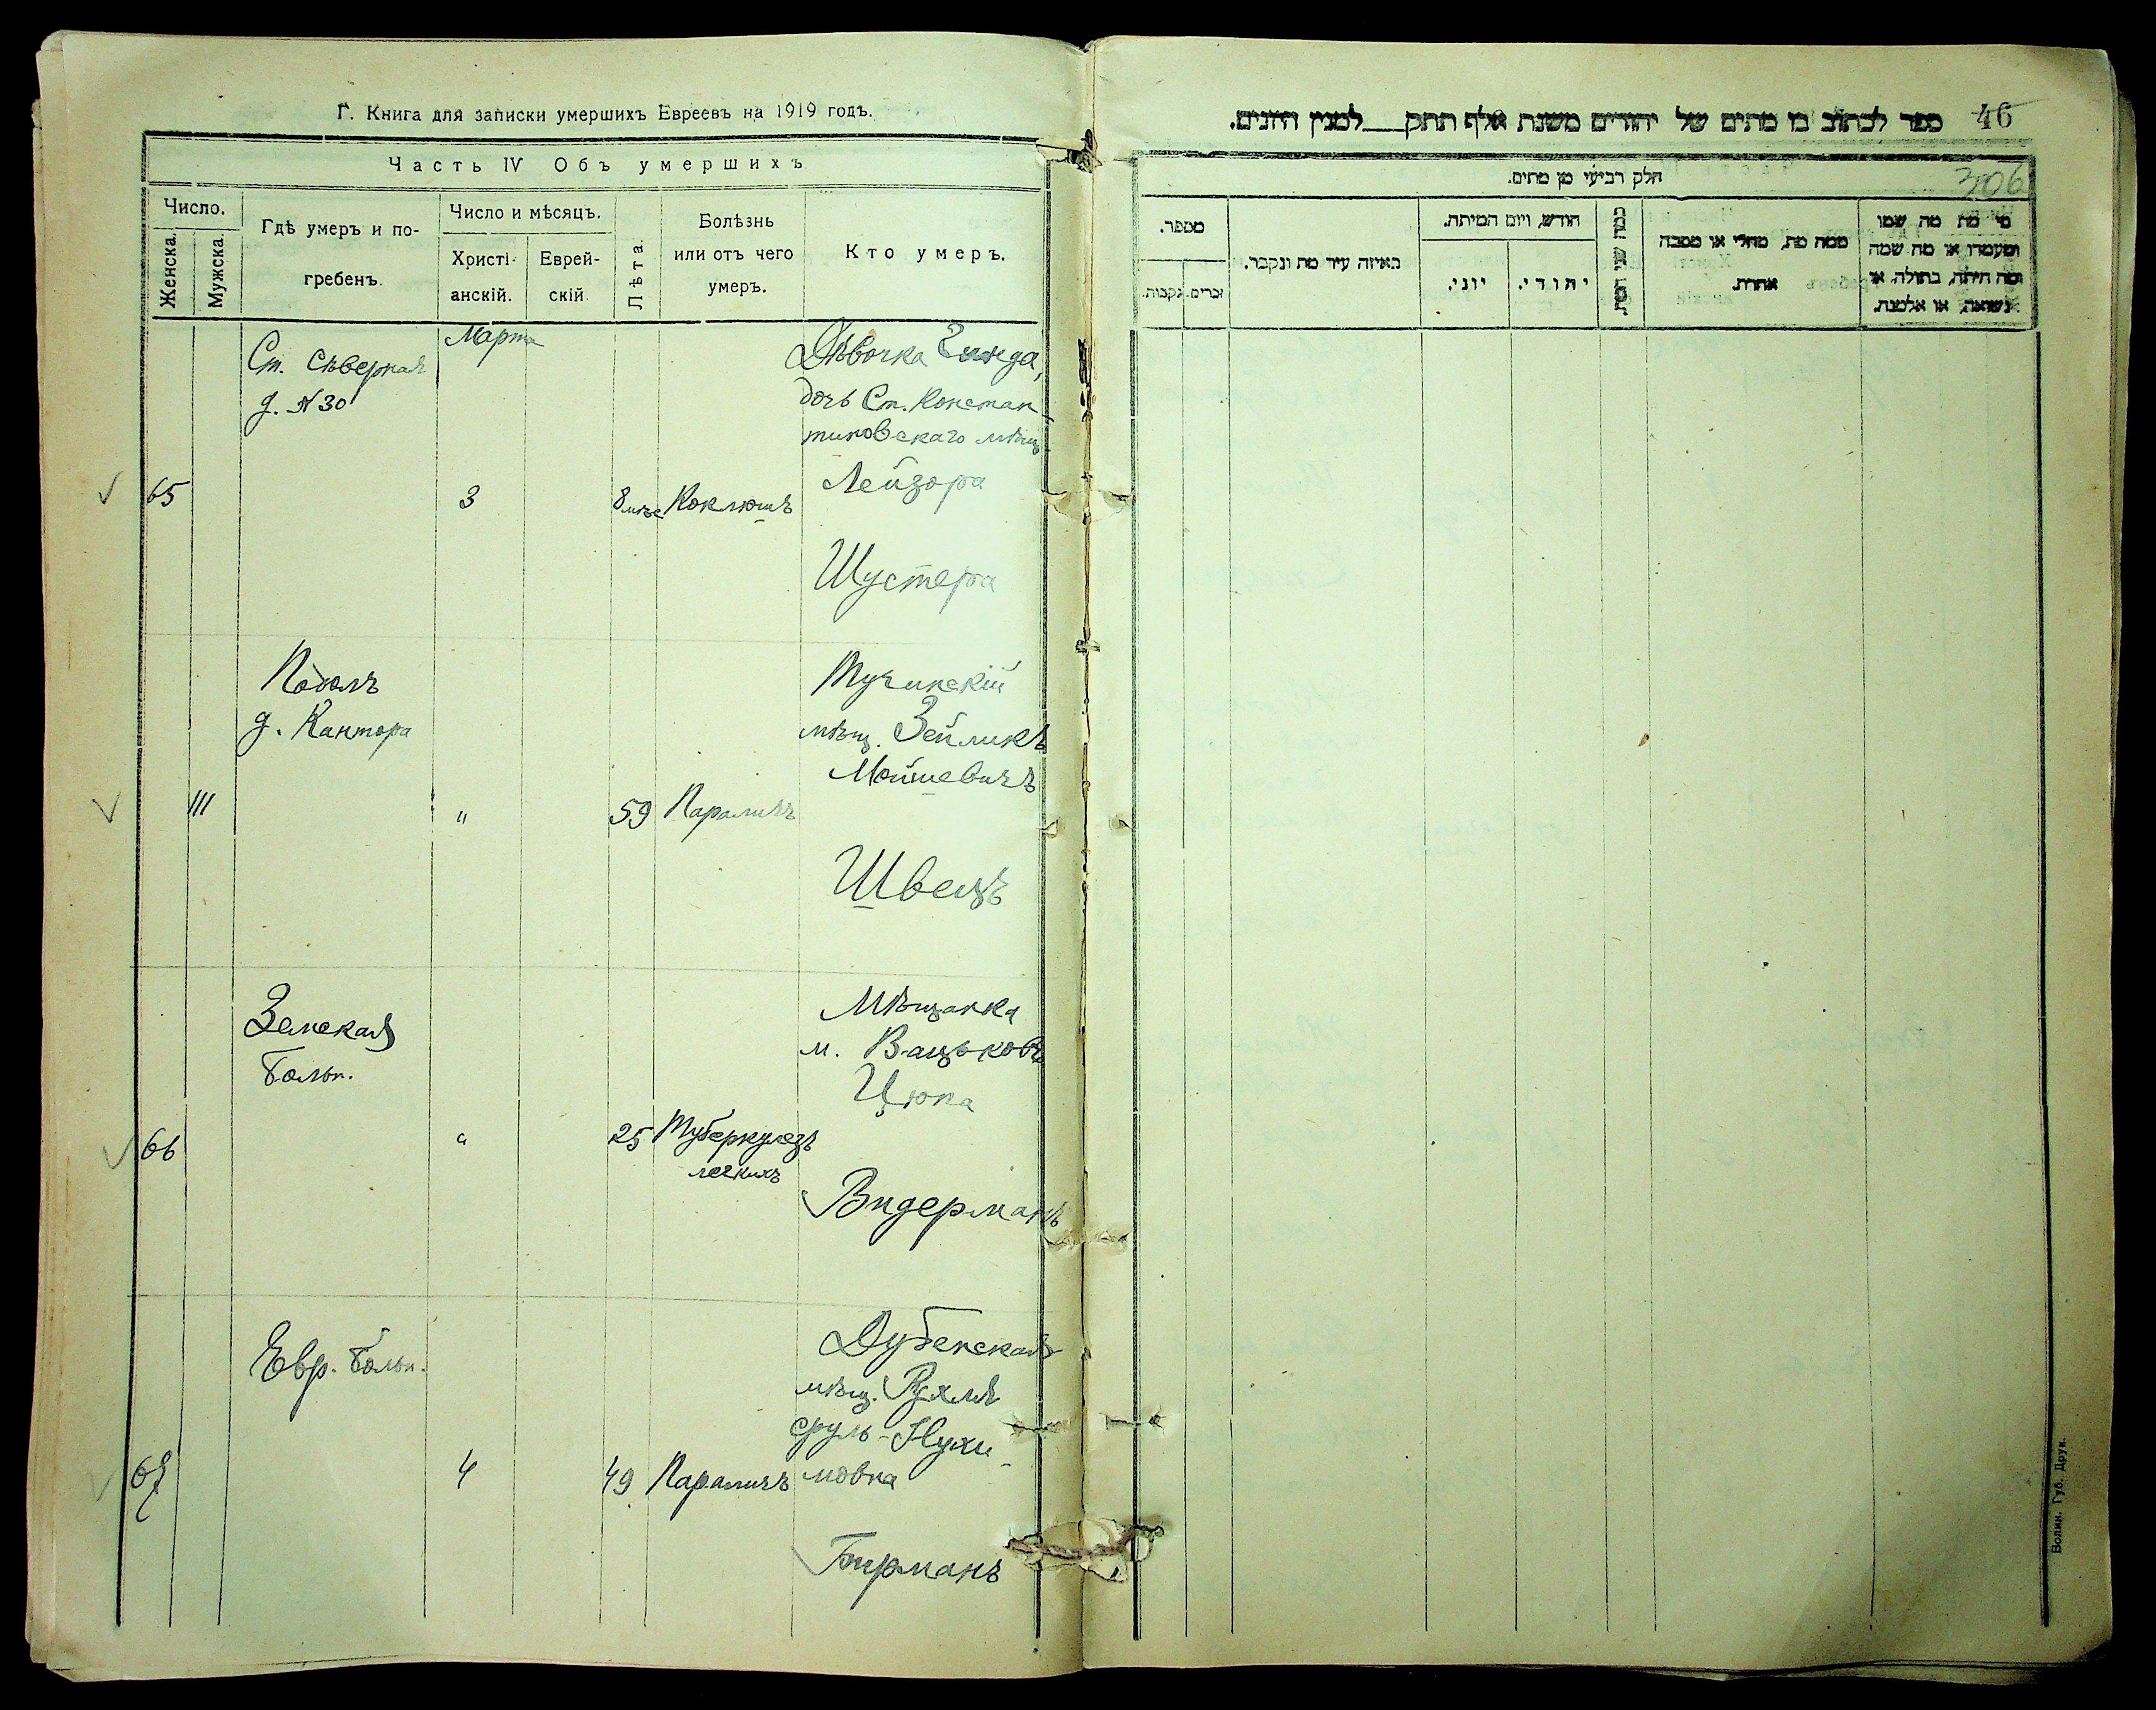 Г. Книга для записки умершихъ Евреевъ на 1919 годъ.
Часть IV Объ умершихъ
Число.
Женска.
Мужска.
Гдѣ умеръ и по-
гребенъ.
Число и мѣсяцъ.
Христі-
анскій.
Еврей-
скій.
Лѣта.
Болѣзнь
или отъ чего
умеръ.
Кто умеръ.
Марта
Ст. Сѣверная
д. № 30
65
3
8 мѣс
Коклюшъ
Дѣвочка
дочь Ст. Констан-
тиновскаго мѣщ
Лейзора
Шустера
Подолъ
д. Кантора
111
"
59
Параличъ
Тучинскій
мѣщ. Зейликъ
Мойшевичъ
Швецъ
Земская
Больн.
66
"
25
Туберкулезъ
легкихъ
Мѣщанка
м.
Цюпа
Видерманъ
Евр. Больн.
67
4
49
Параличъ
Дубенская
мѣщ. Рухля
Сруль-Нухи-
мовна
Бирманъ
46
ספר לכתוב בו מתים של יהודים משנת אלף תתק למנין היונים.
306
חלק רביעי מן מתים.
מספר.
זכרים.
נקבות.
באיזה עיר מת ונקבר.
חודש, ויום המיתה.
יוני.
יהודי.
ממה מת, מחלי או מסבה
אחרת.
מי מת מה שמו
ומעמדו או מה שמה
ומה היתה, בתולה. או
נשואה, או אלמנה.
Волин. Губ. Друк.